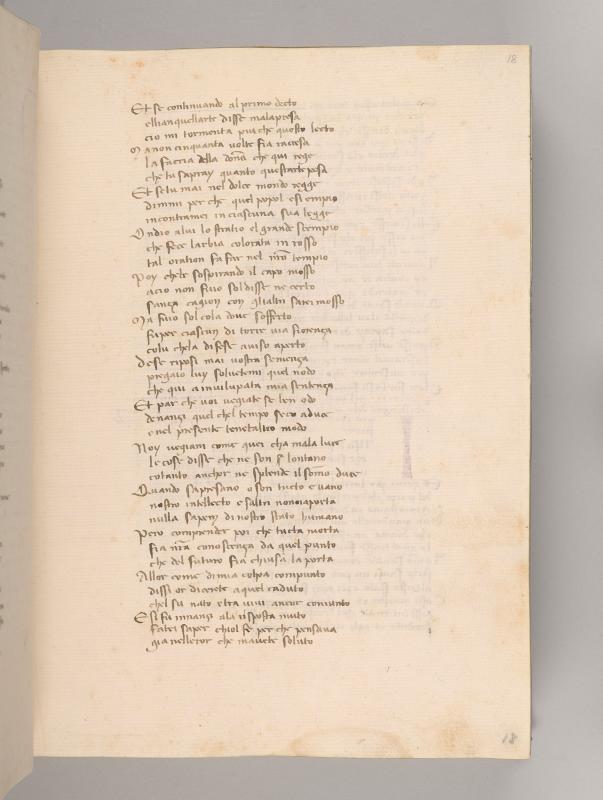 18
Et se continuando al primo decto
ellian quellarte disse malapresa
cio mi tormenta piu che questo lecto
Ma non cinquanta volte fia racesa
la faccia della dona che qui rege
che tu sapray quanto quellarte pesa
Et se tu mai nel dolce mondo regge
dimmi per che quel popol e si empio
incontramei in ciascuna sua legge
Ondio a lui lo stratio el grande scempio
che fece larbia colorata in rosso
tal oration fa far nel nro tempio
Poy chebe sospirando il capo mosso
acio non fuio sol disse ne certo
sanza cagion con glialtri sarei mosso
Ma fuio sol cola doue sofferto
fu per ciascun di torre uia fiorenza
colu chela difese a uiso aperto
Deh se riposi mai uostra semenza
pregaio luy soluetemi quel nodo
che qui a inuilupata mia sentenza
Et par che voi ueggiate se ben odo
denanzi quel chel tempo seco aduce
e nel presente tenetaltro modo
Noy ueggiam come quei cha mala luce
le cose disse che ne son lontano
cotanto anchor ne splende il somo duce
Quando sapresano o son tucto e uano
nostro intellecto e saltri non ci aporta
nulla sapem di nostro stato humano
Pero comprender poi che tucta morta
fia nra conoscenza da quel punto
che del futuro fia chiusa la porta
Allor come di mia colpa compunto
dissi or dicerete a quel caduto
chel su nato e tra uiui ancor coniunto
E si fu innanzi ala risposta muto
fatei saper chiol fe per che pensaua
gia nellerror che mauete soluto
18